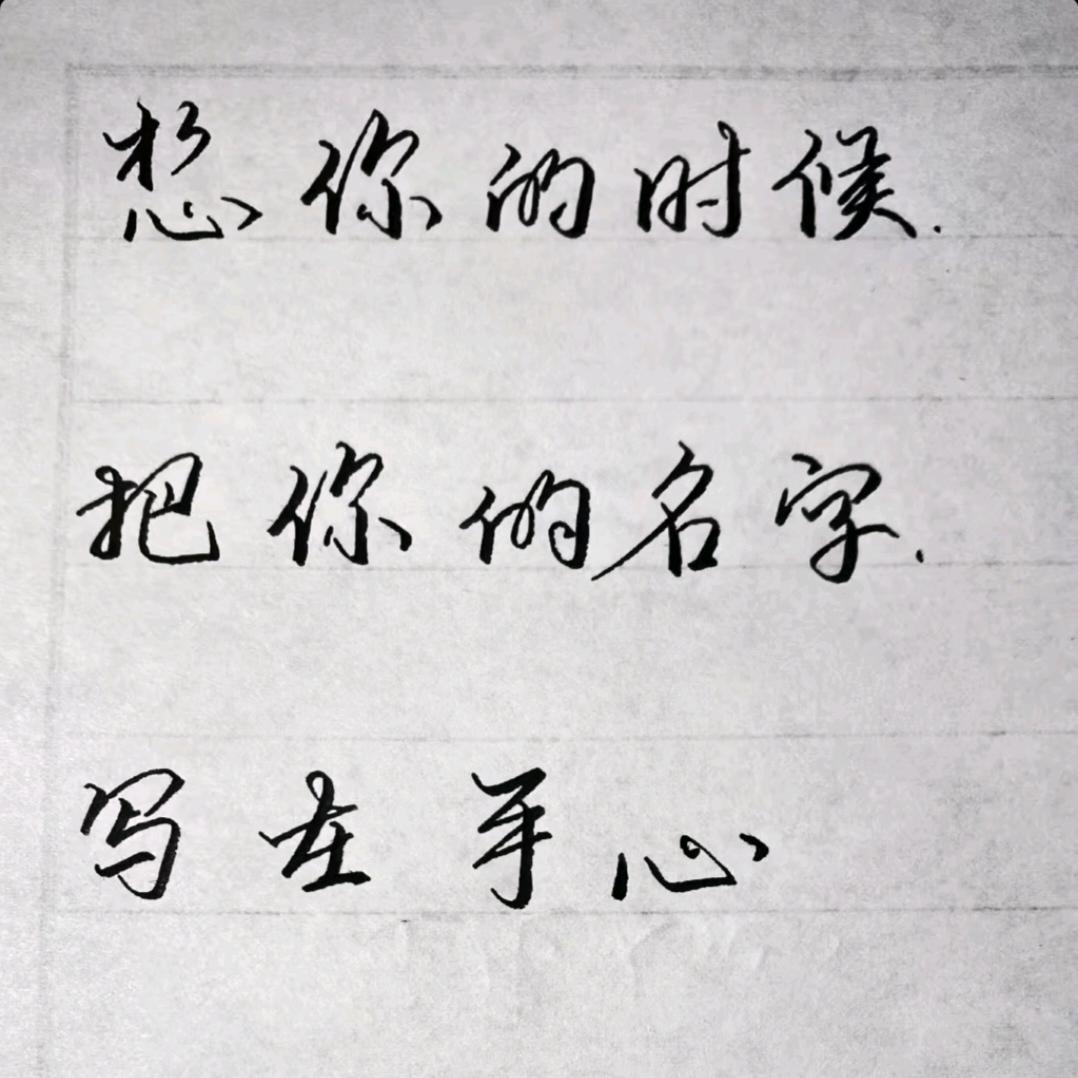 想你的时候.
把你的名字.
写在手心